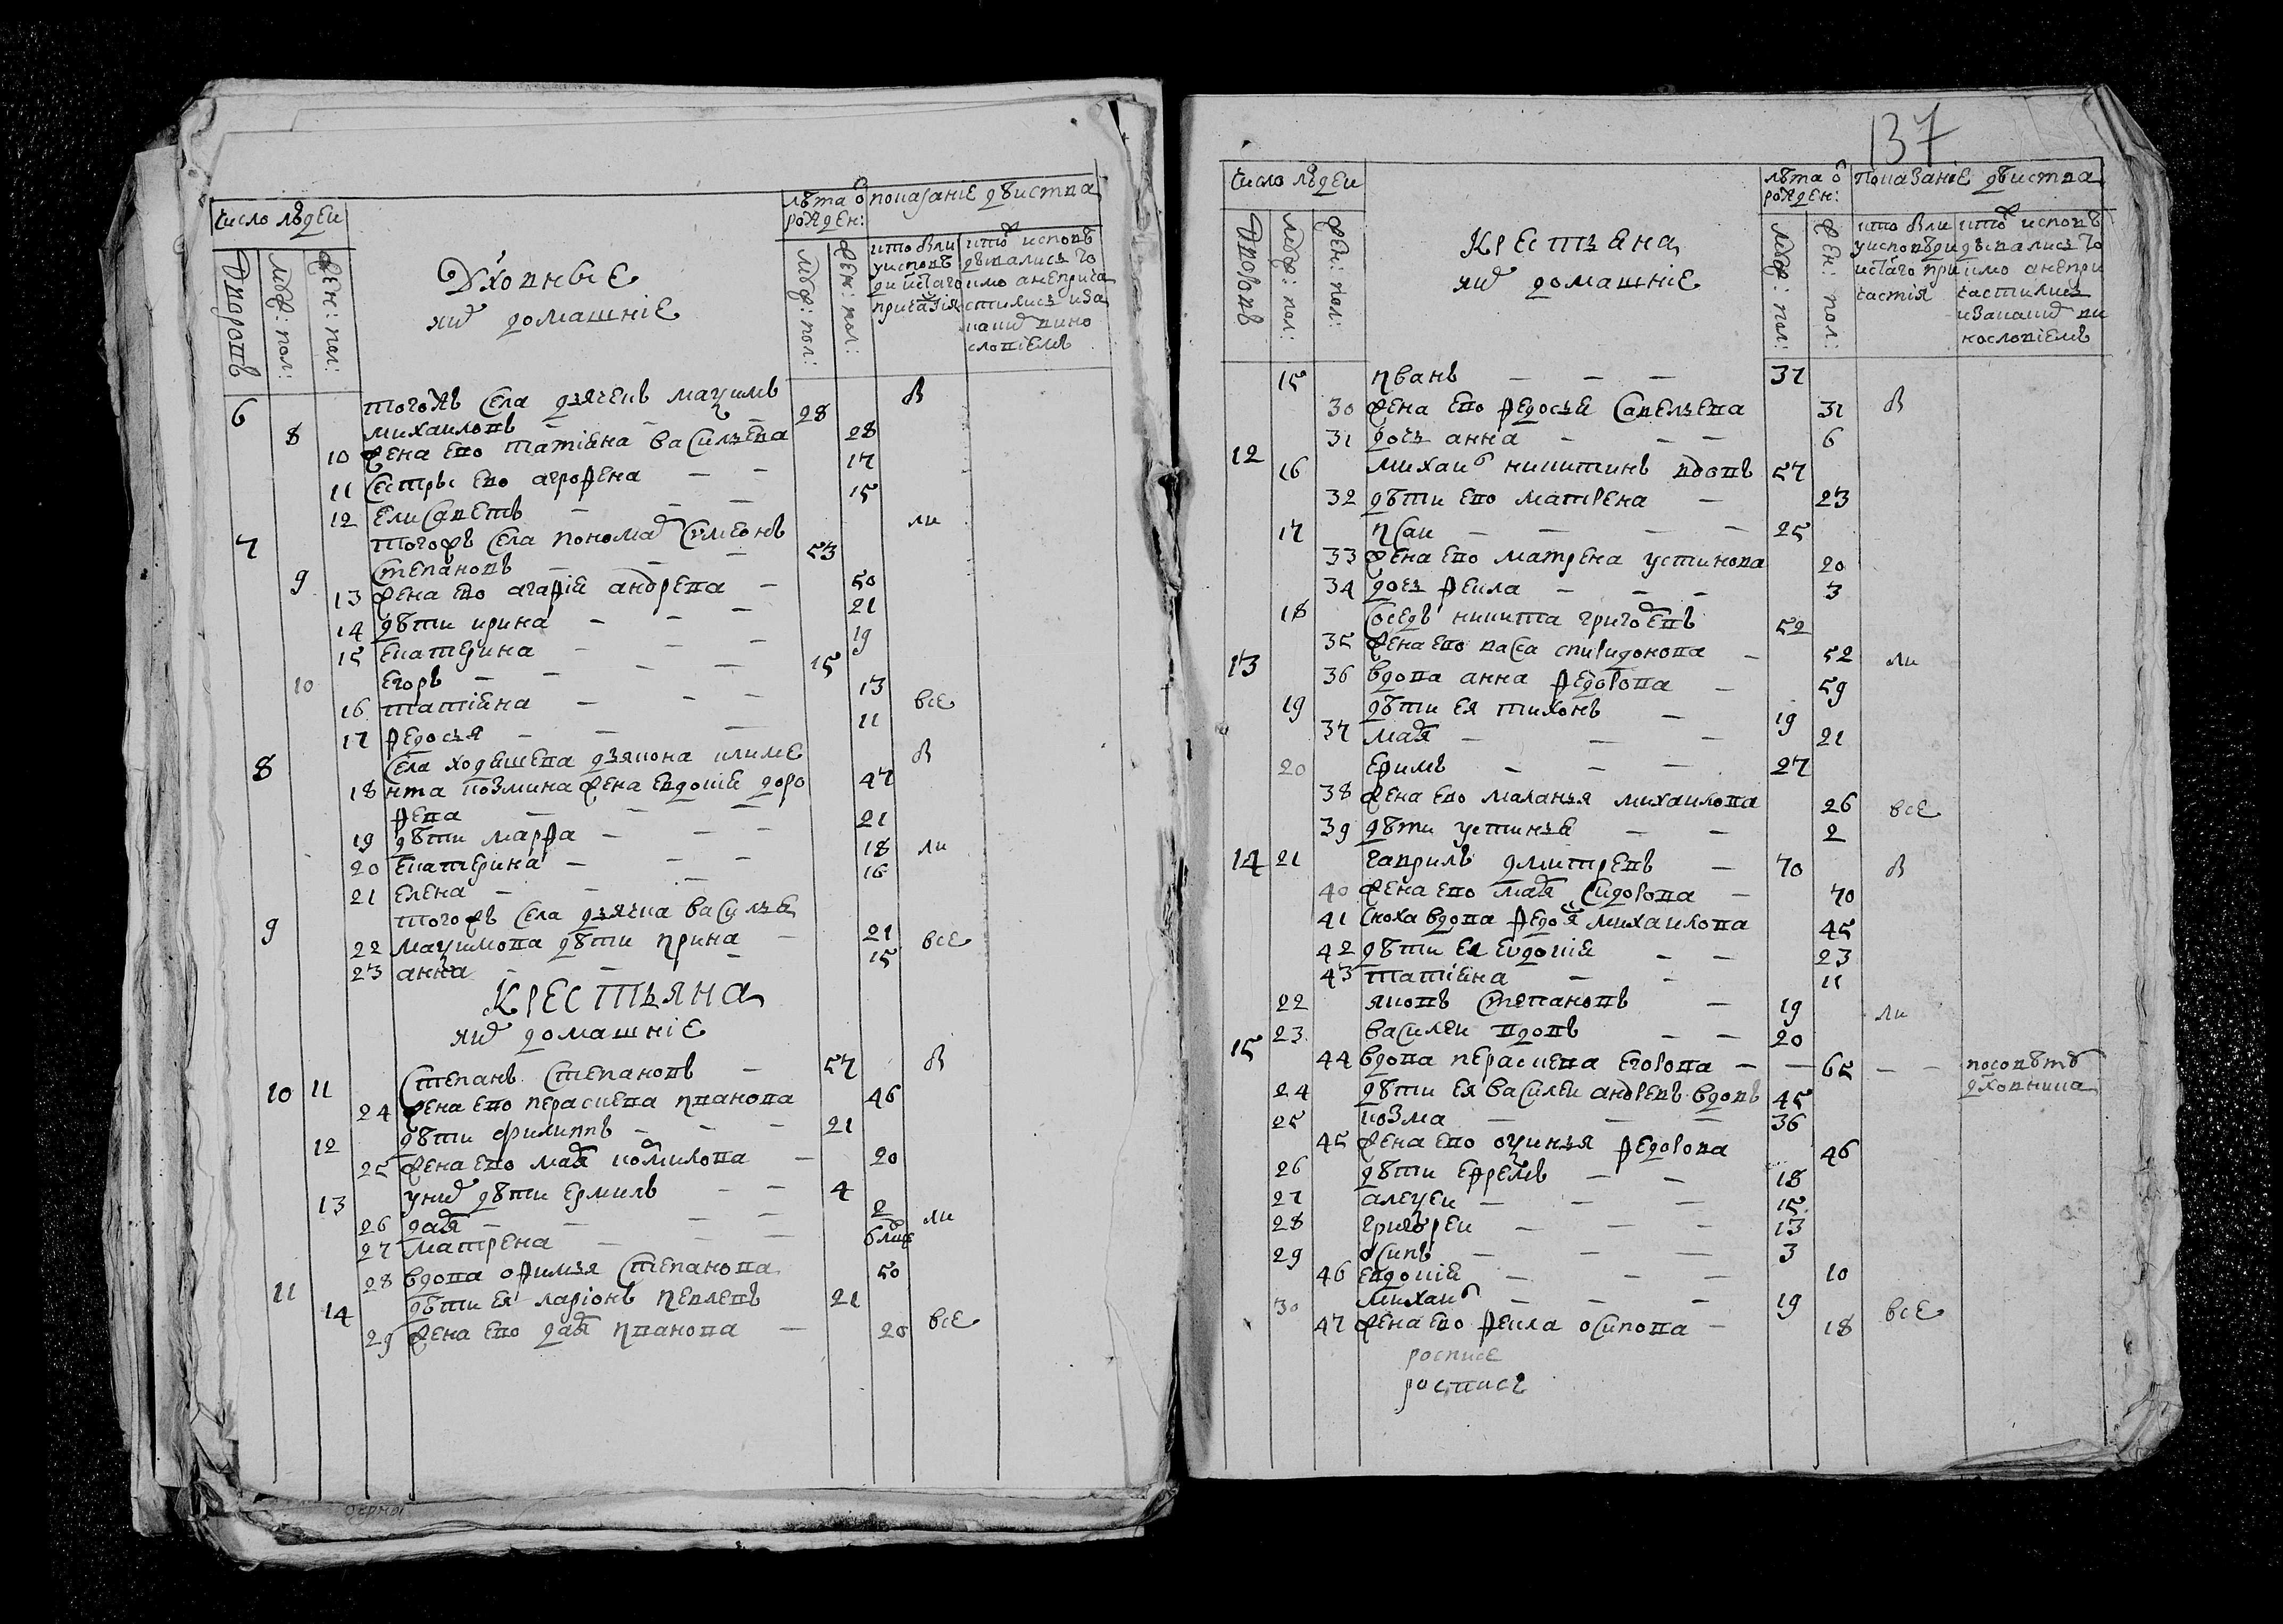 число людеи
лѣта ѿ рожден:
показание дѣиства
Дворовъ
муж: пол:
жен: пол:
Дховные
и их домашние
муж: пол:
жен: пол:
кто были у исповѣди и стаго причастия
кто исповѣдались токмо а не причастились и за каким винословиемъ
6 тогожъ села дьячекъ маѯимъ
8 михаиловъ — — — 28 б
10 жена ево татиена василева 28
11 сестры ево агрофена — — 17
12 елисаветъ — — — 15
7 тогожъ села пономар симеонъ ли
9 степановъ — — 53
13 жена ево агафие андрева — 50
14 дѣти ирина — — — 21
15 екатерина — — — 19
10 егоръ — — — — 15
16 татиена — — — 13 все
17 федосья — — — 11
8 села ходешева дьякона климе б
18 нта козмина жена евдокие доро 47
фева — — —
19 дѣти марфа — — — 21
20 екатерина — — — 18 ли
21 елена — — — 16
9 тогожъ села дьячка василье
22 маѯимова дѣти ирина — 21 все
23 анна — — — 15
Крестьяна
и их домашние
10 11 степанъ степановъ — 57 б
24 жена ево параскева иванова 46
12 дѣти филиппъ — — — 21
25 жена ево маря кормилова — 20
13 у них дѣти ермилъ — — 4
26 даря — — — 2 ли
27 матрена — — —
11 28 вдова офимья степанова 50
14 дѣти ея ларионъ иевлевъ 21
29 жена ево даря иванова — 20 все
137
число людеи
лѣта ѿ рожден:
показание дѣиства
Дворовъ
муж: пол:
жен: пол:
Крестьяна
и их домашние
муж: пол:
жен: пол:
кто были у исповѣди и стаго причастия
кто исповѣдались токмо а не причастились и за каким винословиемъ
15 иванъ — — — 37
30 жена ево федосье савельева 31 б
31 дочь анна — — — 6
12 16 михаил никитинъ вдовъ 57
32 дѣти ево матрена — 23
17 исаи — — — — 25
33 жена ево матрена устинова 20
34 дочь фекла — — — 3
18 сосед никита григоревъ 52
35 жена ево васса спиридонова — 52 ли
13 36 вдова анна федорова — 59
19 дѣти ея тихонъ — 19
37 маря — — — 21
20 ефимъ — — — 27
38 жена ево маланья михаилова 26 все
39 дѣти устинье — — 2
14 21 гаврилъ дмитревъ — 70 б
40 жена ево маря сидорова — 70
41 сноха вдова федося михаилова 45
42 дѣти ея евдокие — — 23
43 татиена — — 11
22 яковъ степановъ — 19 ли
23 василеи вдовъ — — 20
15 44 вдова параскева егорова — — 65 — — по совѣту дховника
24 дѣти ея василеи андревъ вдовъ 45
25 козма — — — 36
45 жена ево оѯинья федорова 46
26 дѣти ефремъ — — 18
27 алеѯеи — — — 15
28 григореи — — — 13
29 осипъ — — — 3
46 евдокие — — — 10
30 михаил — — — 19
47 жена ево фекла осипова — 18 все
росписе
росписе